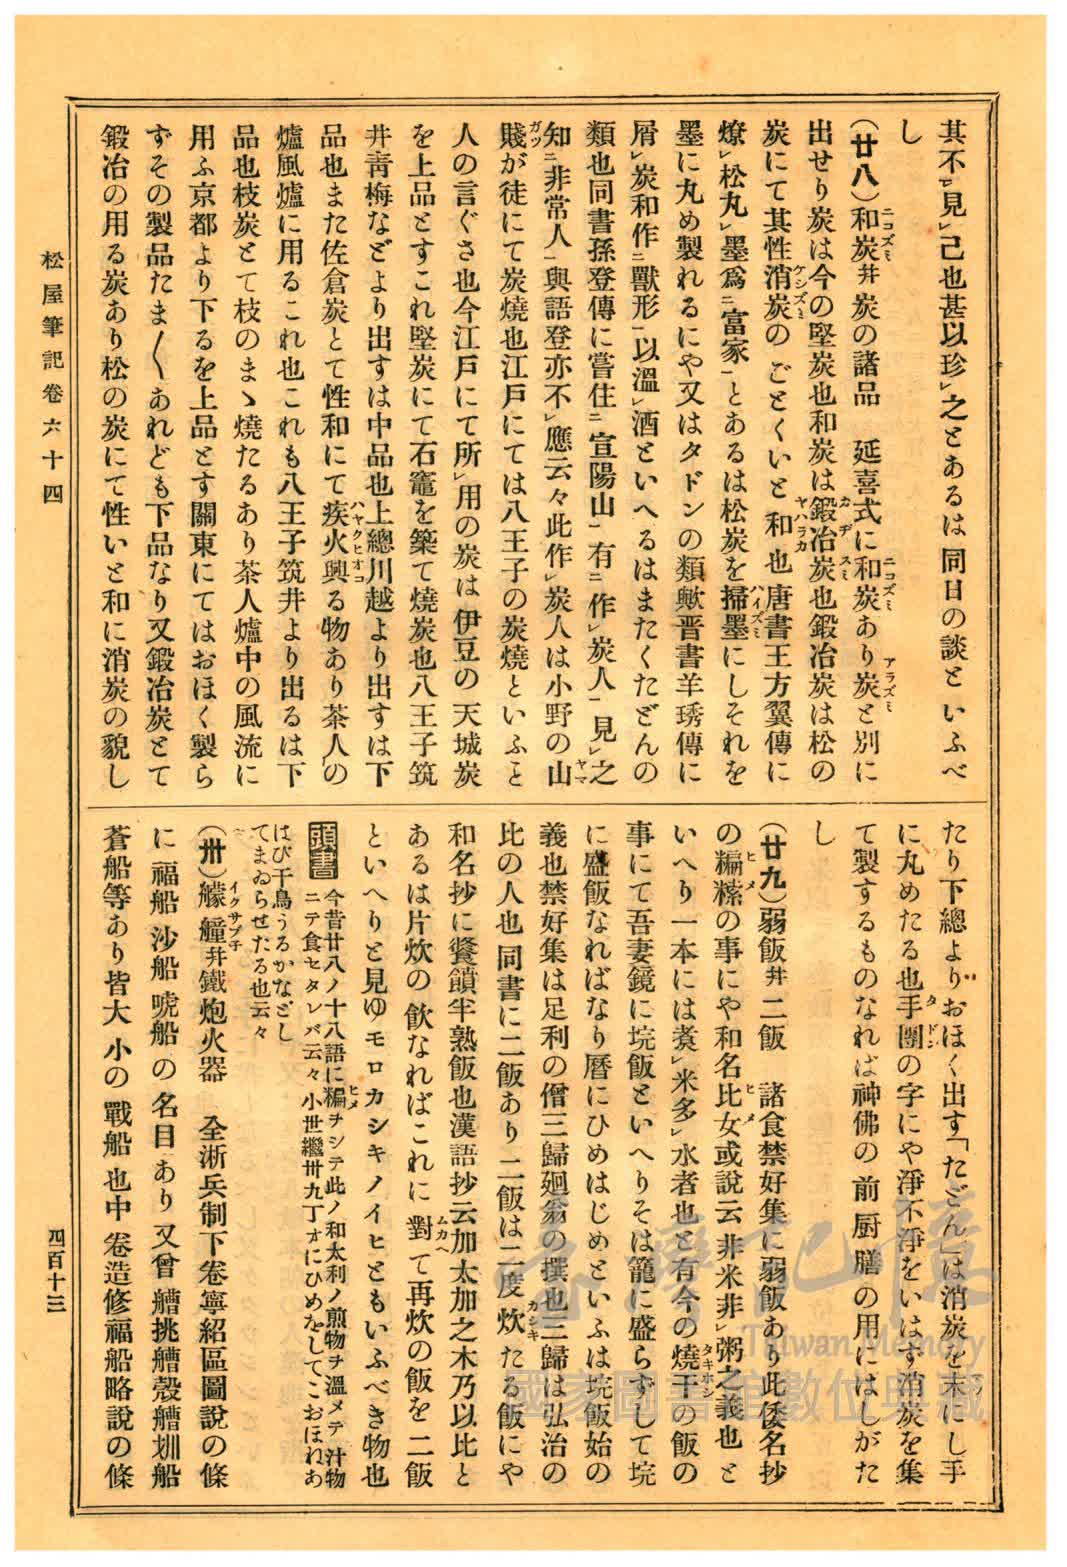 其不ㇾ見ㇾ己也甚以珍ㇾ之とあるは同日の談といふべ
し
(廿八)和炭幷炭の諸品　延喜式に和炭あり炭と別に
出せり炭は今の堅炭也和炭は鍛冶炭也鍛冶炭は松の
炭にて其性消炭のごとくいと和也唐書王方翼傳に
燎ㇾ松丸ㇾ墨爲ニ富家一とあるは松炭を掃墨にしそれを
墨に丸め製れるにや又はタドンの類歟晋書羊琇傳に
屑ㇾ炭和作ニ獸形一以溫ㇾ酒といへるはまたくたどんの
類也同書孫登傳に嘗住ニ宣陽山一有ニ作ㇾ炭人一見ㇾ之
知ニ非常人一與語登亦不ㇾ應云々此作ㇾ炭人は小野の山
賤が徒にて炭燒也江戸にては八王子の炭燒といふと
人の言ぐさ也今江戸にて所ㇾ用の炭は伊豆の天城炭
を上品とすこれ堅炭にて石竈を築て燒炭也八王子筑
井靑梅などより出すは中品也上總川越より出すは下
品也また佐倉炭とて性和にて疾火興る物あり茶人の
爐風爐に用るこれ也これも八王子筑井より出るは下
品也枝炭とて枝のまゝ燒たるあり茶人爐中の風流に
用ふ京都より下るを上品とす關東にてはおほく製ら
ずその製品たま〳〵あれども下品なり又鍛冶炭とて
鍛冶の用る炭あり松の炭にて性いと和に消炭の貌し
たり下總よりおほく出す「たどん」は消炭を末にし手
に丸めたる也手團の字にや淨不淨をいはず消炭を集
て製するものなれば神佛の前厨膳の用にはしがた
し
(廿九)弱飯幷二飯　諸食禁好集に弱飯あり此倭名抄
の糄𥻨の事にや和名比女或說云非米非ㇾ粥之義也と
いへり一本には煮ㇾ米多ㇾ水者也と有今の燒干の飯の
事にて吾妻鏡に垸飯といへりそは籠に盛らずして垸
に盛飯なればなり曆にひめはじめといふは垸飯始の
義也禁好集は足利の僧三歸廻翁の撰也三歸は弘治の
比の人也同書に二飯あり二飯は二度炊たる飯にや
和名抄に餐饙半熟飯也漢語抄云加太加之木乃以比と
あるは片炊の飮なればこれに對て再炊の飯を二飯
といへりと見ゆモロカシキノイヒともいふべき物也
頭書　今昔廿八ノ十八語に糄ヲシテ此ノ和太利ノ煎物ヲ溫メテ汁物
ニテ食セタレバ云々小世繼卅九丁オにひめをしてこおほねあ
はび干鳥うるかなどし
てまゐらせたる也云々
(卅)艨艟幷鐵炮火器　全浙兵制下卷寧紹區圖說の條
に福船沙船唬船の名目あり又曾艚挑艚殼艚划船
蒼船等あり皆大小の戰船也中卷造修福船略說の條
松屋筆記卷六十四
四百十三
臺灣記憶
Taiwan Memory
國家圖書館數位典藏